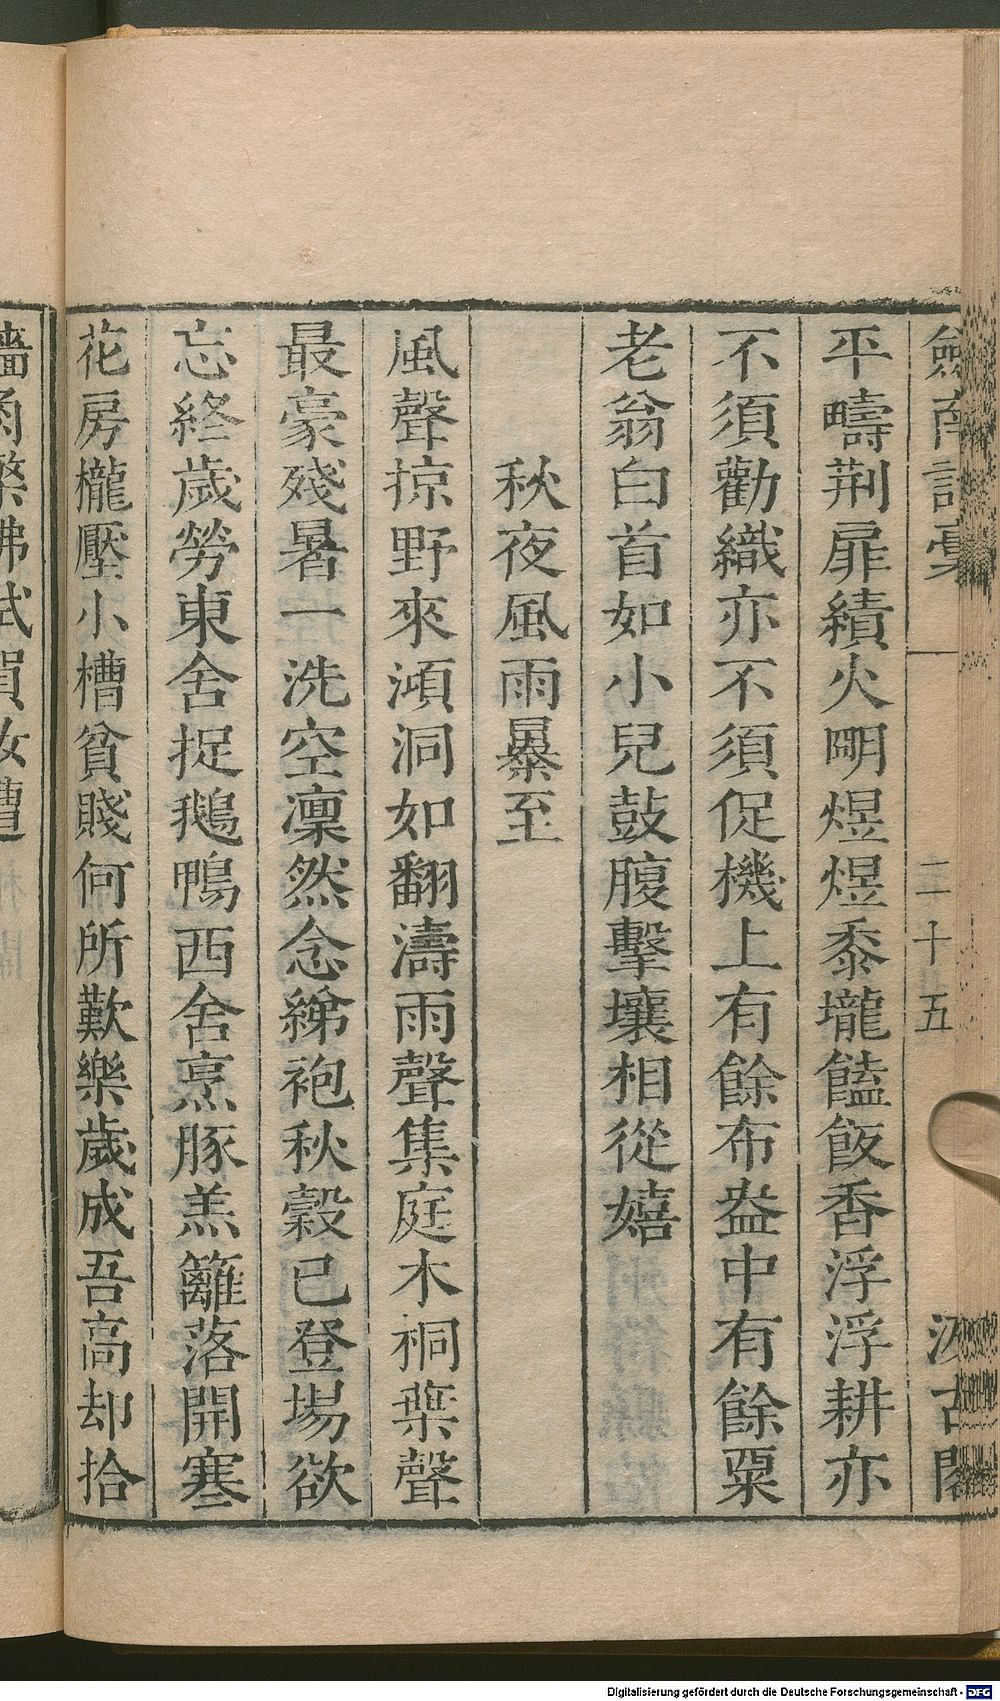 劍南詩稾
二十五
汲古閣
平疇荆扉績火明煜煜黍壠饁飯香浮浮耕亦
不須勸織亦不須促機上有餘布盎中有餘粟
老翁白首如小兒鼓腹擊壤相從嬉
秋夜風雨暴至
風聲掠野來澒洞如翻濤雨聲集庭木桐葉聲
最豪殘暑一洗空凜然念綈袍秋穀已登場欲
忘終歲勞東舍捉鵝鴨西舍烹豚羔籬落開寒
花房櫳壓小槽貧賤何所歎樂歲成吾高却拾
Digitalisierung gefördert durch die Deutsche Forschungsgemeinschaft - DFG